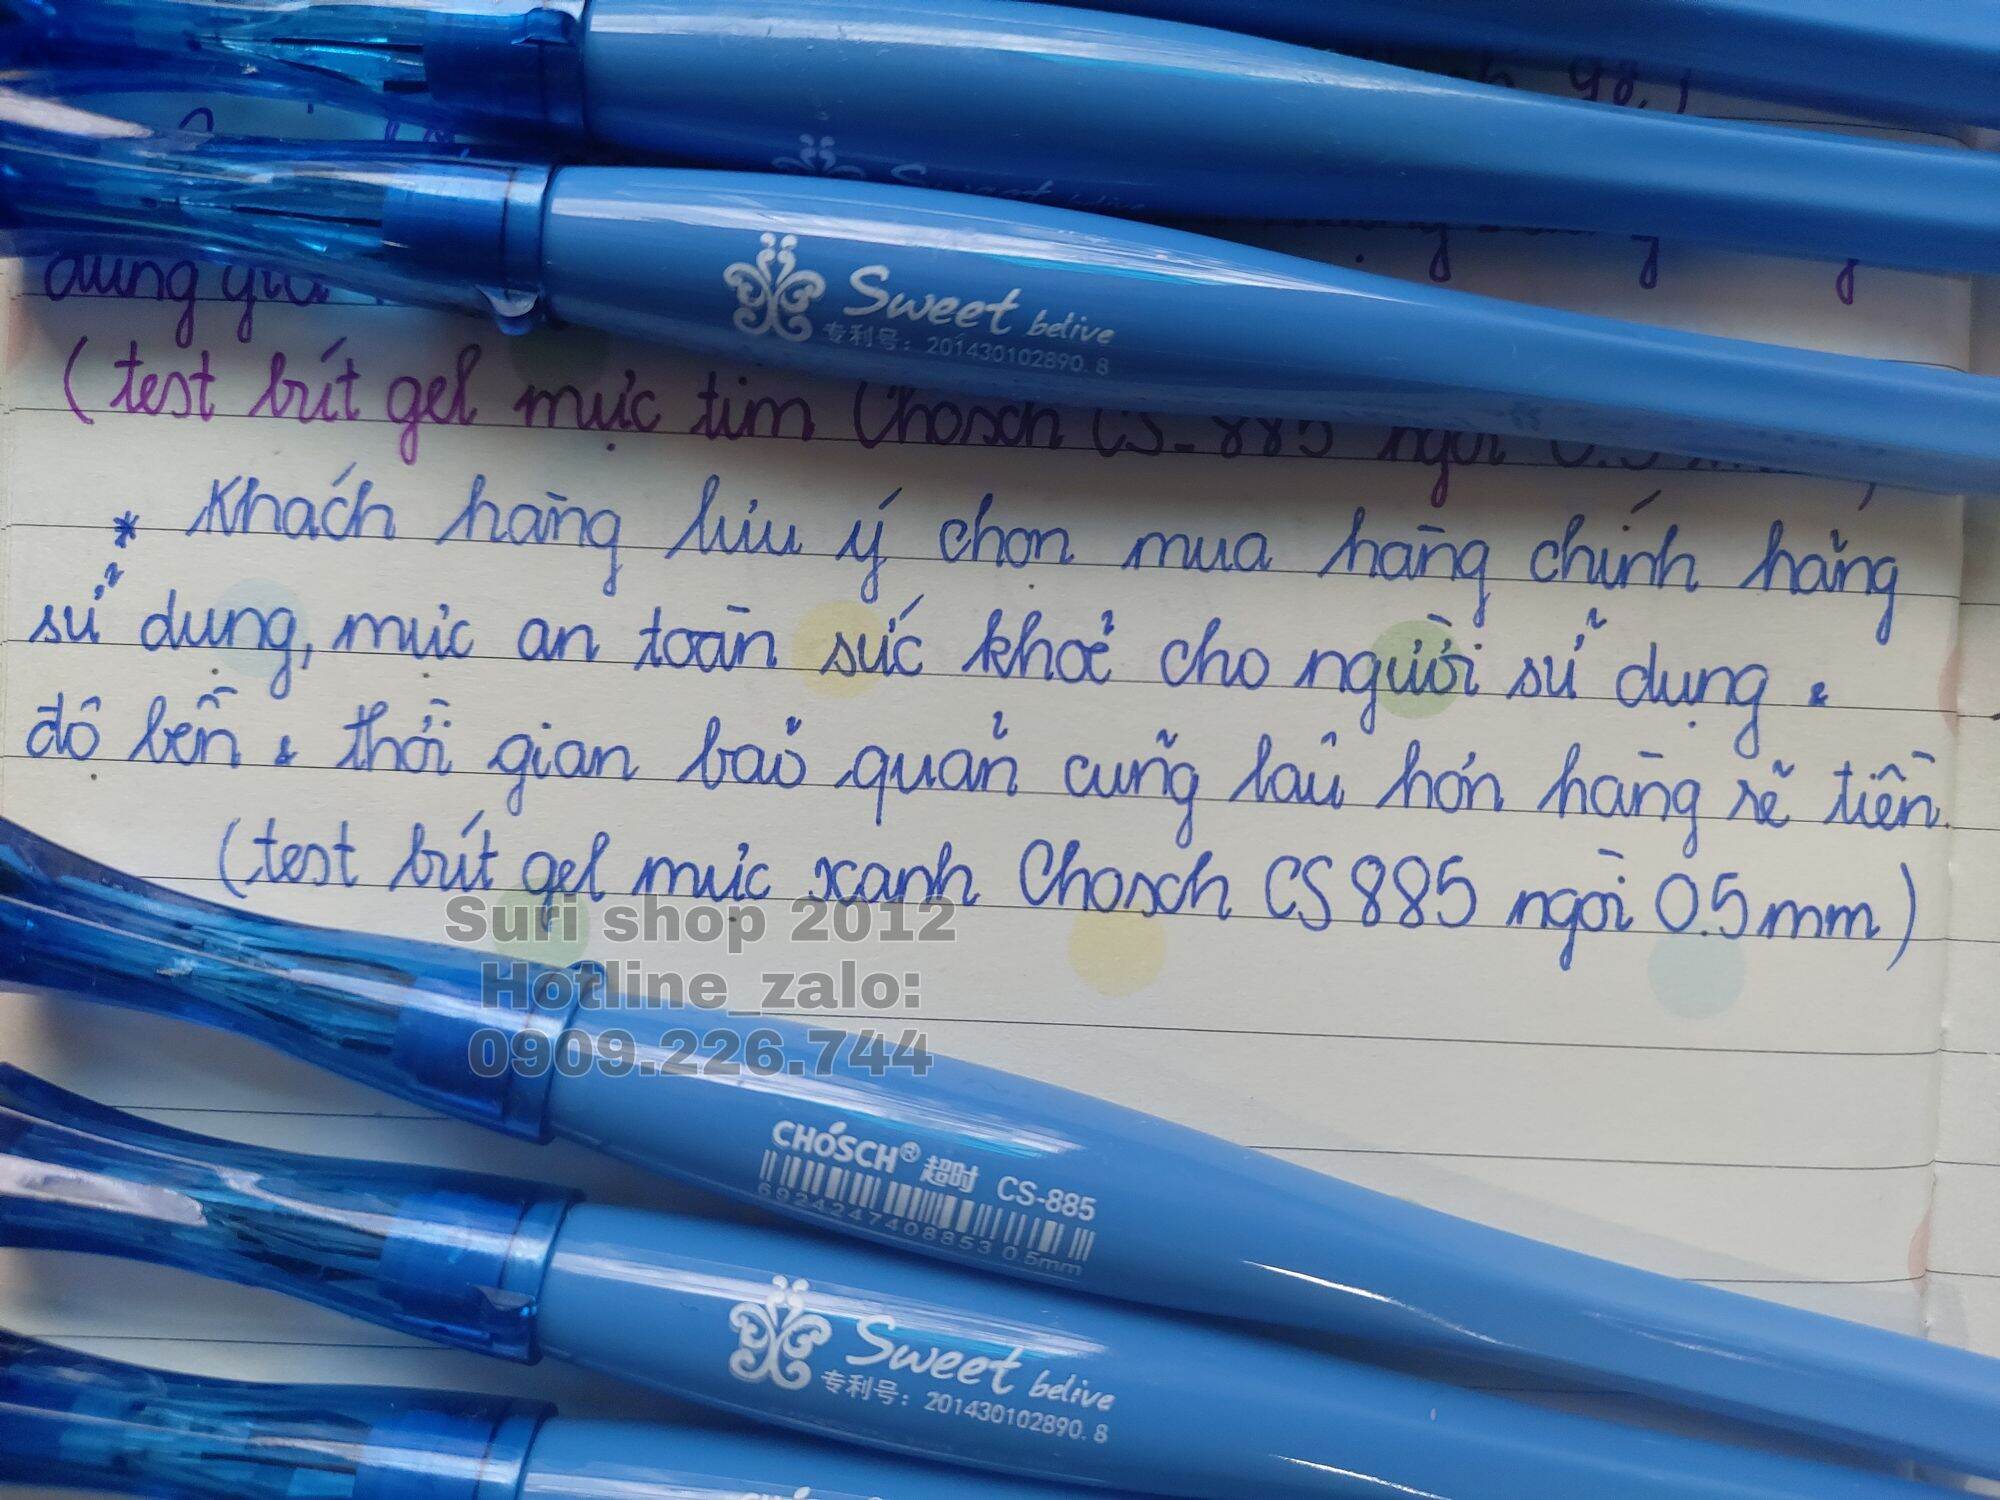 Sweet belive
专利号: 201430102890.8
dung
(test bút gel mực tím Chosch CS-885 ngòi 0.5
* Khách hàng lưu ý chọn mua hàng chính hãng
sử dụng, mực an toàn sức khoẻ cho người sử dụng &
độ bền & thời gian bảo quản cũng lâu hơn hàng rẽ tiền.
(test bút gel mực xanh Chosch CS 885 ngòi 0.5mm)
Suri shop 2012
Hotline_zalo:
0909.226.744
CHOSCH® 超时 CS-885
6924247408853 0.5mm
Sweet belive
专利号: 201430102890.8